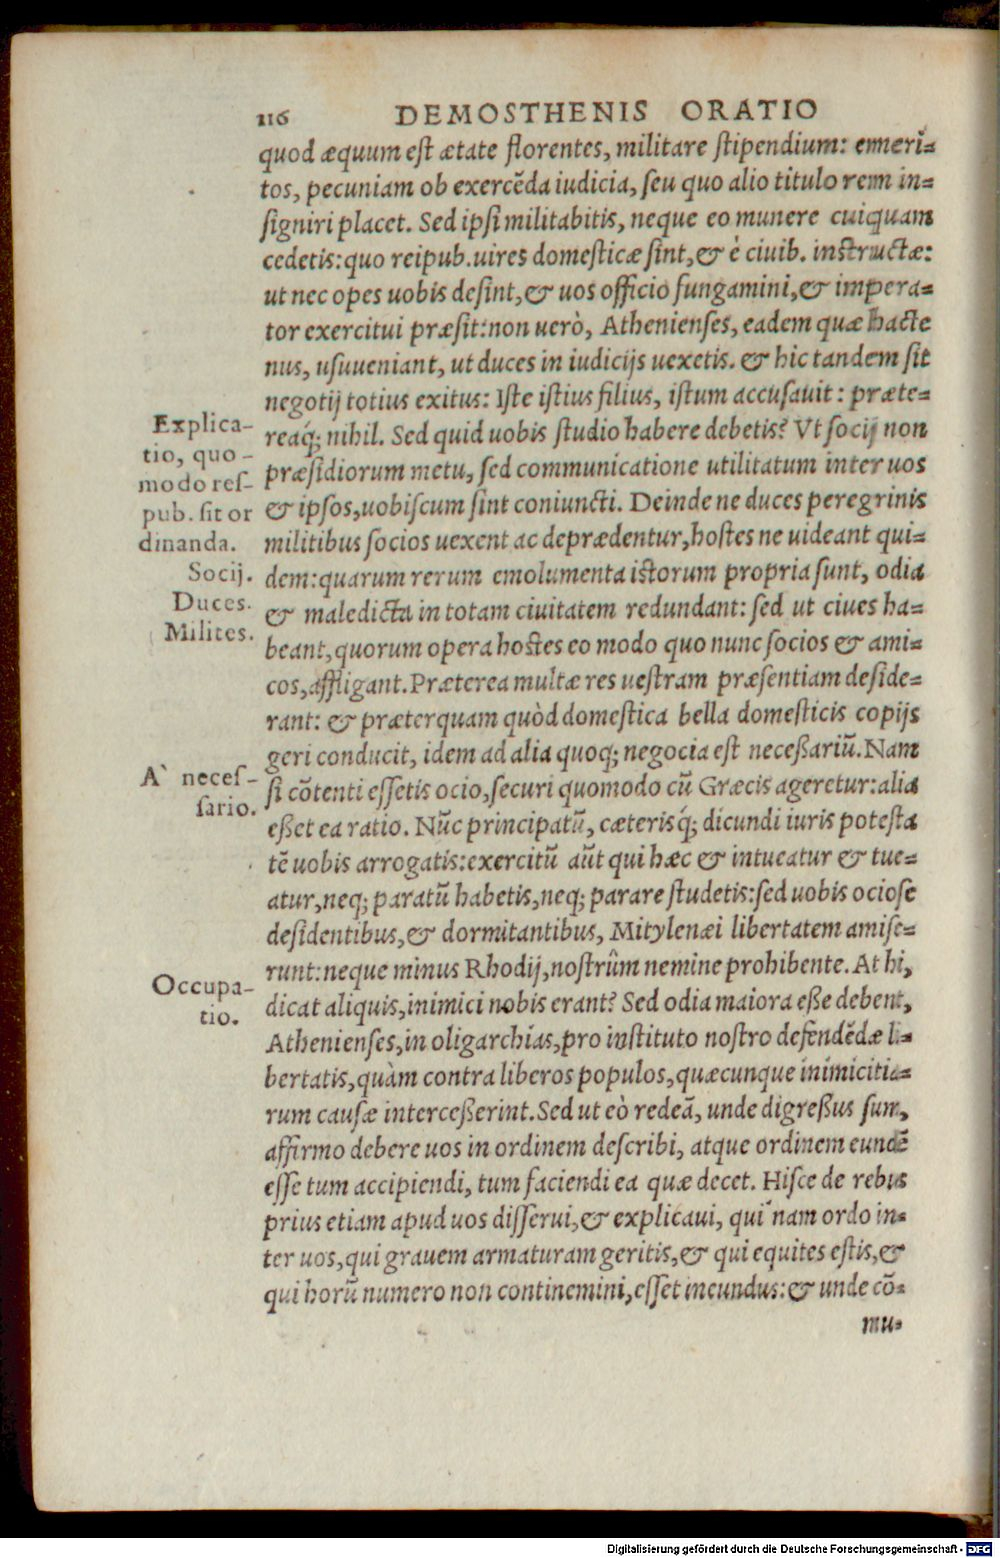 116 DEMOSTHENIS ORATIO
quod æquum est ætate florentes, militare stipendium: emeri=
tos, pecuniam ob exercẽda iudicia, seu quo alio titulo rem in=
signiri placet. Sed ipsi militabitis, neque eo munere cuiquam
cedetis: quo reipub. uires domesticæ sint, & è ciuib. instructæ:
ut nec opes uobis desint, & uos officio fungamini, & impera=
tor exercitui præsit: non uerò, Athenienses, eadem quæ hacte
nus, usuueniant, ut duces in iudicijs uexetis. & hic tandem sit
negotij totius exitus: Iste istius filius, istum accusauit: præte=
reaq́; nihil. Sed quid uobis studio habere debetis? Vt socij non
præsidiorum metu, sed communicatione utilitatum inter uos
& ipsos, uobiscum sint coniuncti. Deinde ne duces peregrinis
militibus socios uexent ac deprædentur, hostes ne uideant qui=
dem: quarum rerum emolumenta istorum propria sunt, odia
& maledicta in totam ciuitatem redundant: sed ut ciues ha=
beant, quorum opera hostes eo modo quo nunc socios & ami=
cos, affligant. Præterea multæ res uestram præsentiam deside=
rant: & præterquam quòd domestica bella domesticis copijs
geri conducit, idem ad alia quoq; negocia est neceßariũ. Nam
si cõtenti essetis ocio, securi quomodo cũ Græcis ageretur: alia
eßet ea ratio. Nũc principatũ, cæterisq́; dicundi iuris potesta
tẽ uobis arrogatis: exercitũ aũt qui hæc & intueatur & tue=
atur, neq; paratũ habetis, neq; parare studetis: sed uobis ociose
desidentibus, & dormitantibus, Mitylenæi libertatem amise=
runt: neque minus Rhodij, nostrûm nemine prohibente. At hi,
dicat aliquis, inimici nobis erant? Sed odia maiora eße debent,
Athenienses, in oligarchias, pro instituto nostro defendẽdæ li=
bertatis, quàm contra liberos populos, quæcunque inimicitia=
rum causæ interceßerint. Sed ut eò redeã, unde digreßus sum,
affirmo debere uos in ordinem describi, atque ordinem eundẽ
esse tum accipiendi, tum faciendi ea quæ decet. Hisce de rebus
prius etiam apud uos disserui, & explicaui, qui nam ordo in=
ter uos, qui grauem armaturam geritis, & qui equites estis, &
qui horũ numero non continemini, esset ineundus: & unde cõ=
mu=
Explica-
tio, quo-
modo res-
pub. sit or
dinanda.
Socij.
Duces.
Milites.
A` neces-
sario.
Occupa-
tio.
Digitalisierung gefördert durch die Deutsche Forschungsgemeinschaft - DFG